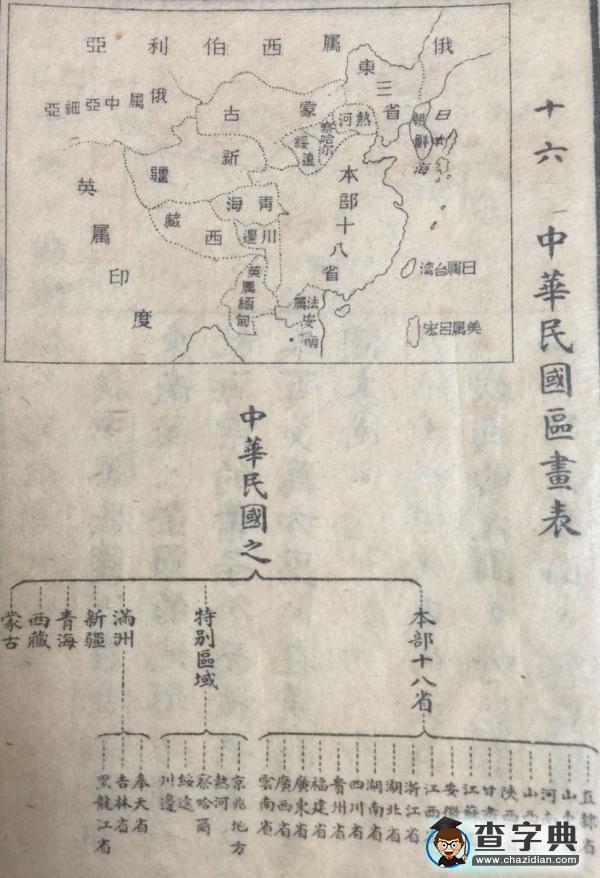 十六 中華民國區畫表
俄属西伯利亞
俄属中亞細亞
東三省
蒙古
熱河
察哈尔
綏遠
新疆
朝鮮
日本海
青海
西藏
川邊
本部十八省
英属印度
英属緬甸
法属安南
日属台湾
美属呂宋
中華民國之
本部十八省
特別區域
滿洲
新疆
青海
西藏
蒙古
直隸省
山
河
山
陝
甘
江
安
江西
浙江省
湖北省
湖南省
四川省
貴州省
福建省
廣東省
廣西省
雲南省
京兆地方
熱河
察哈爾
綏遠
川邊
奉天省
吉林省
黑龍江省
查字典
www.chazidian.com